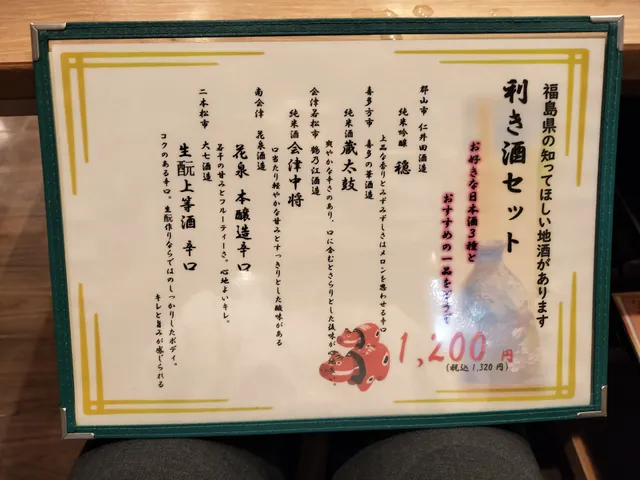 福島県の知ってほしい地酒があります
利き酒セット
お好きな日本酒3種と
おすすめの一品をどうぞ
郡山市 仁井田酒造
純米吟醸 穏
上品な香りとみずみずしさはメロンを思わせる辛口
喜多方市 喜多の華酒造
純米酒 蔵太鼓
爽やかな辛さのあり、口に含むとさらりとした後味が心地
会津若松市 鶴乃江酒造
純米酒 会津中将
口当たり軽やかな甘みとすっきりとした酸味がある
南会津 花泉酒造
花泉 本醸造辛口
若干の甘みとフルーティーさ。心地よいキレ。
二本松市 大七酒造
生酛上等酒 辛口
コクのある辛口。生酛作りならではのしっかりしたボディ。
キレと旨みが感じられる
1,200円
(税込1,320円)